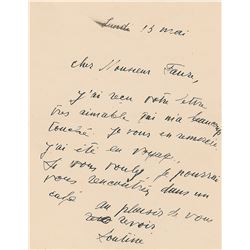 Lundi 13 mai
cher Monsieur Faure,
j'ai reçu votre lettre
très aimable qui m'a beaucoup
touché je vous en remercie
j'ai été en voyage.
Si vous voulez je pourrai
vous rencontrer dans un
café
au plaisir de vous
revoir
Soutine